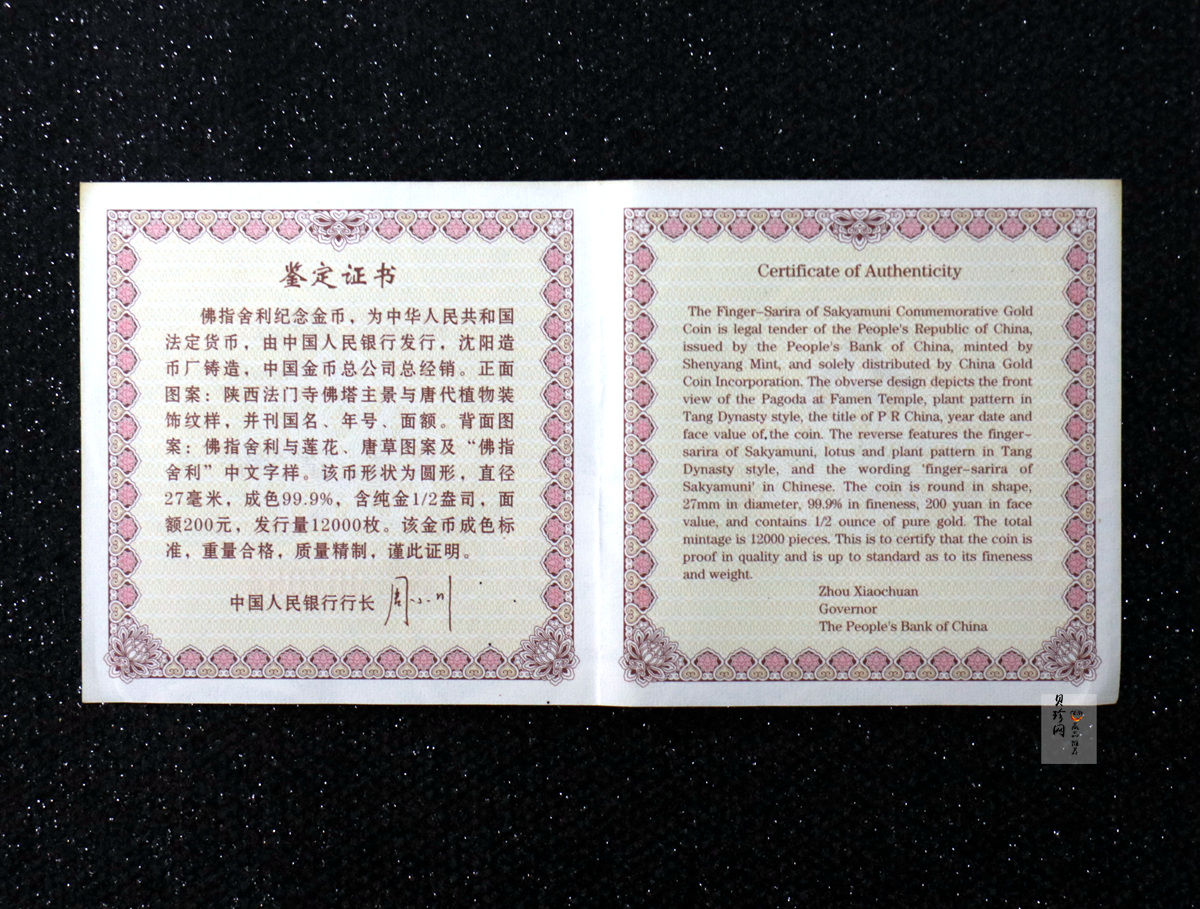 鉴定证书
佛指舍利纪念金币，为中华人民共和国
法定货币，由中国人民银行发行，沈阳造
币厂铸造，中国金币总公司总经销。正面
图案：陕西法门寺佛塔主景与唐代植物装
饰纹样，并刊国名、年号、面额。背面图
案：佛指舍利与莲花、唐草图案及“佛指
舍利”中文字样。该币形状为圆形，直径
27毫米，成色99.9%，含纯金1/2盎司，面
额200元，发行量12000枚。该金币成色标
准，重量合格，质量精制，谨此证明。
中国人民银行行长 周小川
Certificate of Authenticity
The Finger-Sarira of Sakyamuni Commemorative Gold
Coin is legal tender of the People's Republic of China,
issued by the People's Bank of China, minted by
Shenyang Mint, and solely distributed by China Gold
Coin Incorporation. The obverse design depicts the front
view of the Pagoda at Famen Temple, plant pattern in
Tang Dynasty style, the title of P R China, year date and
face value of the coin. The reverse features the finger-
sarira of Sakyamuni, lotus and plant pattern in Tang
Dynasty style, and the wording 'finger-sarira of
Sakyamuni' in Chinese. The coin is round in shape,
27mm in diameter, 99.9% in fineness, 200 yuan in face
value, and contains 1/2 ounce of pure gold. The total
mintage is 12000 pieces. This is to certify that the coin is
proof in quality and is up to standard as to its fineness
and weight.
Zhou Xiaochuan
Governor
The People's Bank of China
贝珍网